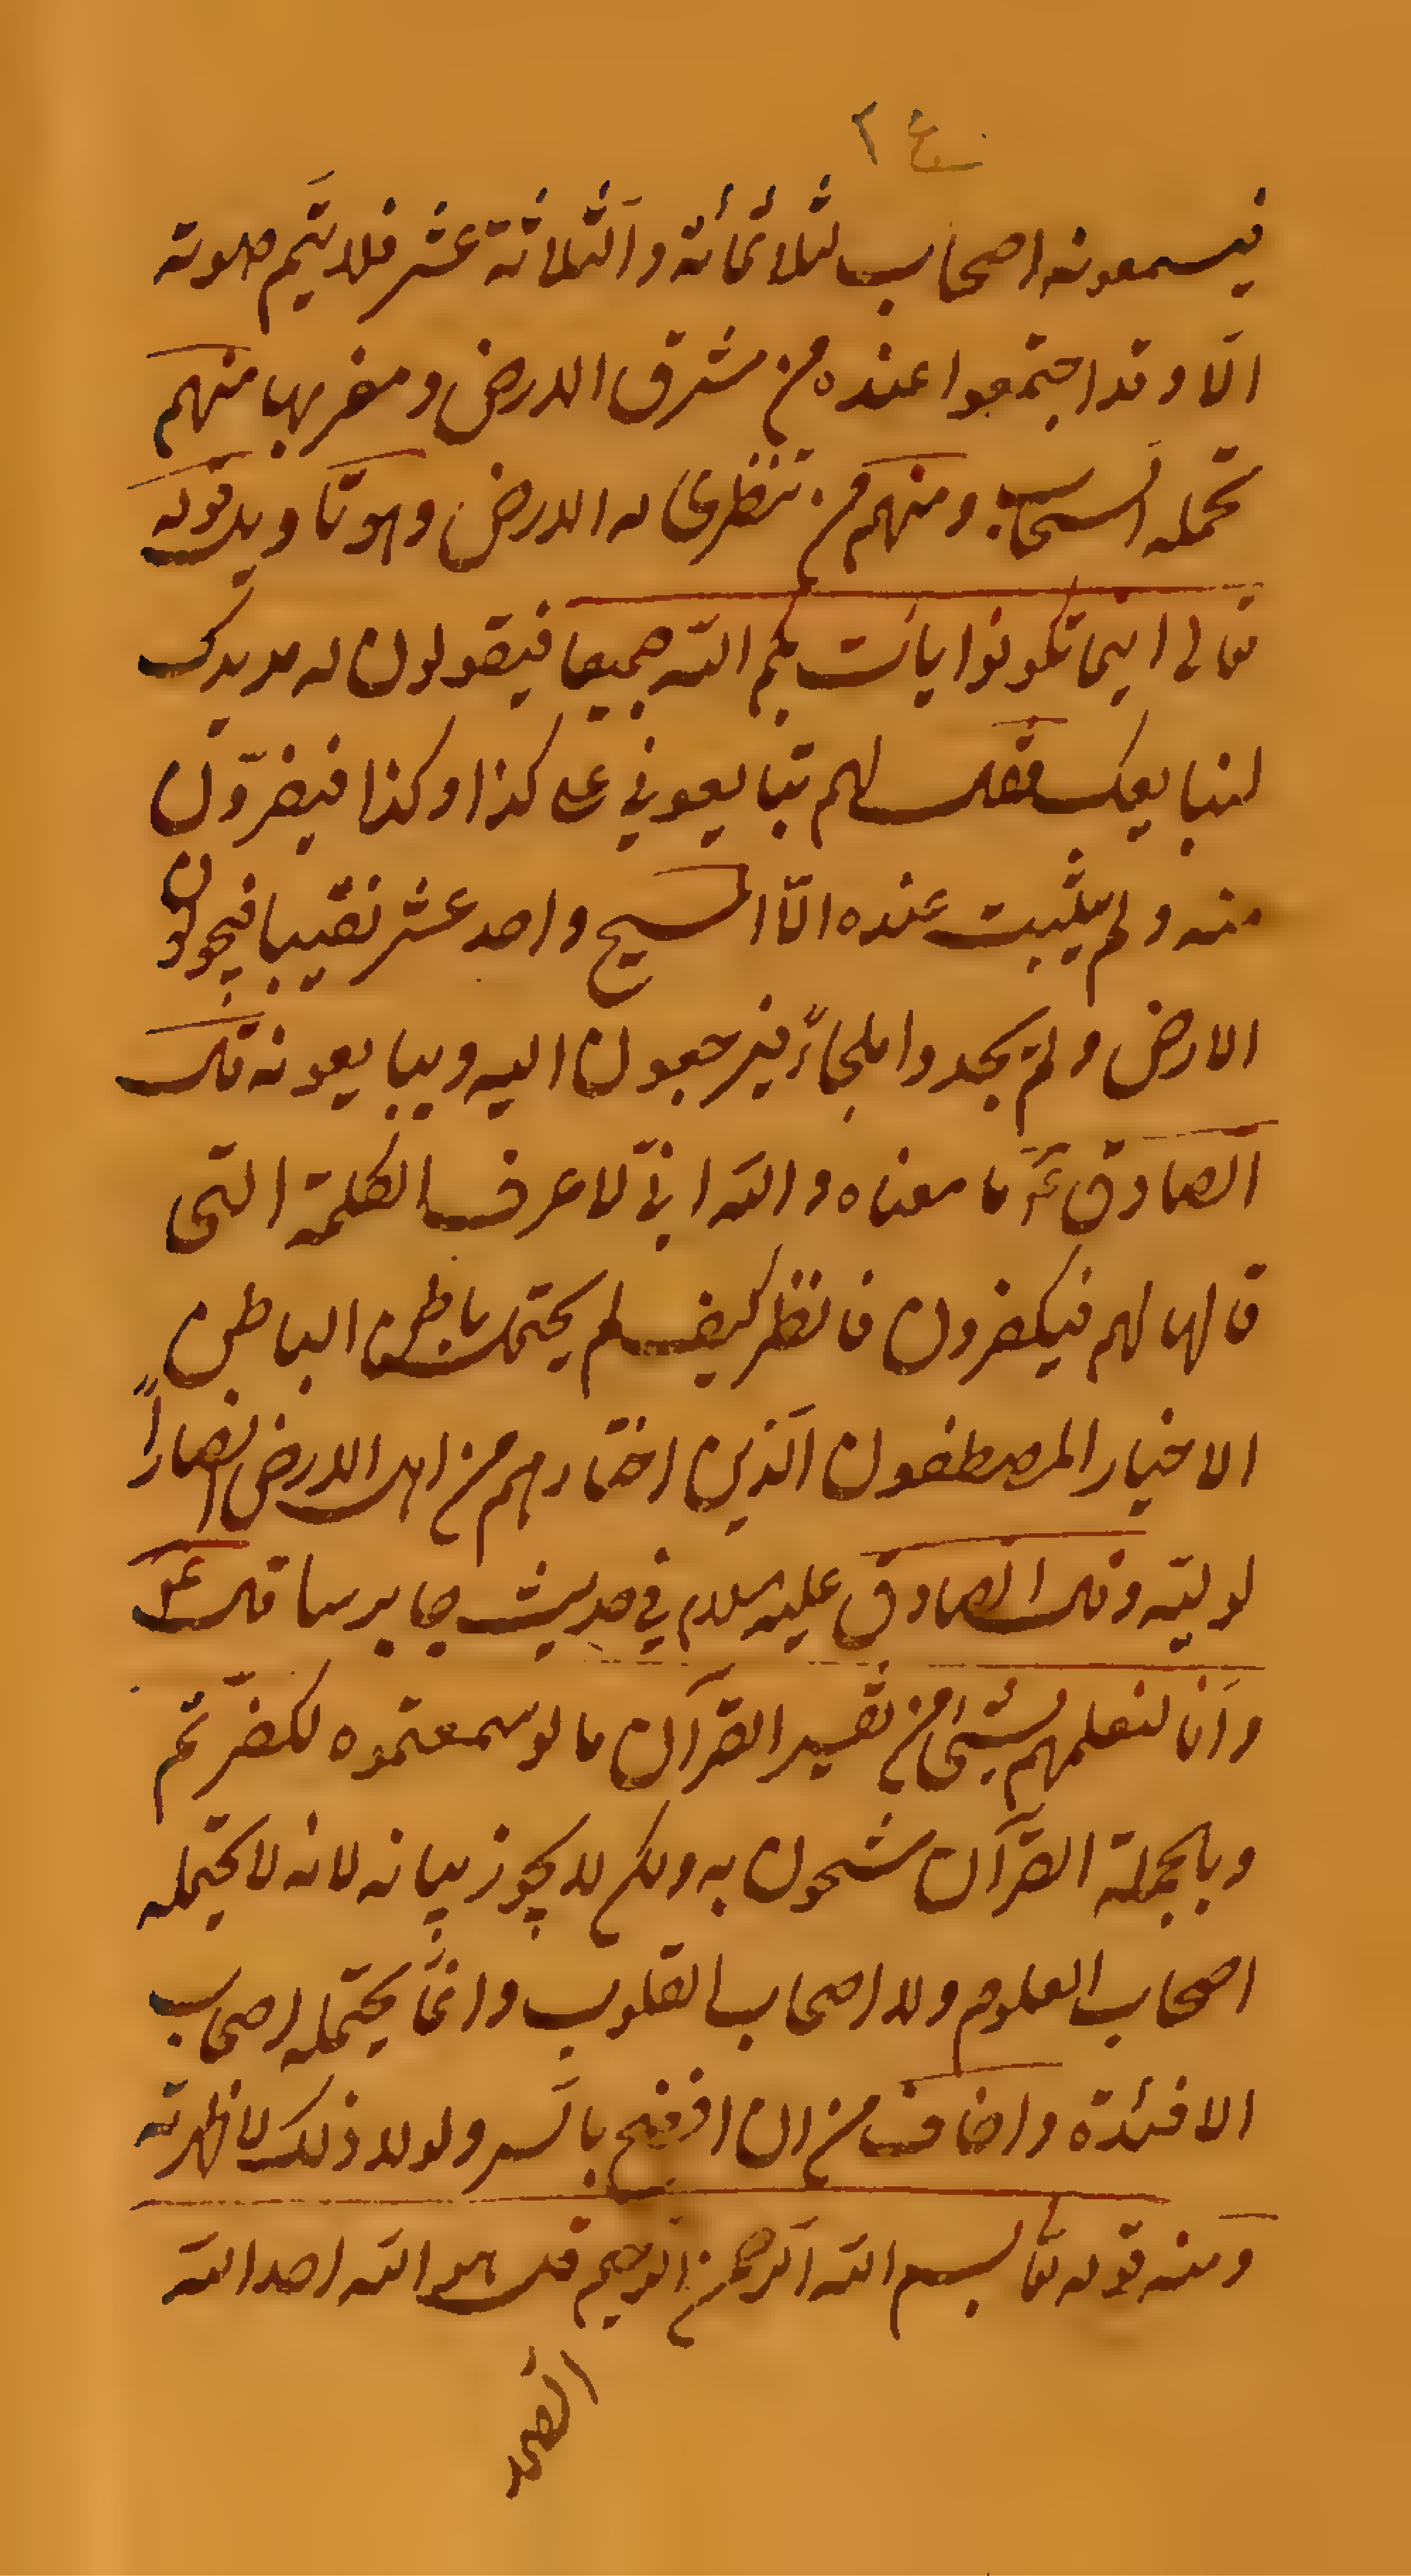 فيسمعونه اصحاب لثلاثمائة والثلاثة عشر فلا يتم صلوته
الا وقد اجتمعوا عنده من مشرق الارض ومغربها منهم
تحمله السحاب ومنهم من تنظوى له الارض وهو تاويل قوله
تعالى اينما تكونوا يات بكم الله جميعا فيقولون له مد يدك
لنبايعك فقال لهم تبايعوني على كذا وكذا فيفرّون
منه ولم يثبت عنده الّا المسيح واحد عشر نقيبا فيجولون
الارض ولم يجدوا ملجاءً فيرجعون اليه ويبايعونه قال
الصادق ع ما معناه والله انّي لاعرف الكلمة التي
قالها لهم فيكفرون فانظر كيف لم يحتمل باطن الباطن
الاخيار المصطفون الذين اختارهم من اهل الارض انصاراً
لوليّه وقال الصادق عليه السلام في حديث جابرسا قال ع
وانا لنعلمهم شيئ من تفسير القرآن ما لو سمعتموه لكفرتم
وبالجملة القرآن مشحون به ولكم لا يجوز بيانه لانه لا يحتمله
اصحاب العلوم ولا اصحاب القلوب وانّما يحتمله اصحاب
الافئدة واخاف من ان افضح بالسر ولولا ذلك لاظهرته
ومنه قوله تعا بسم الله الرحمن الرحيم قل هو الله احد الله
الصمد